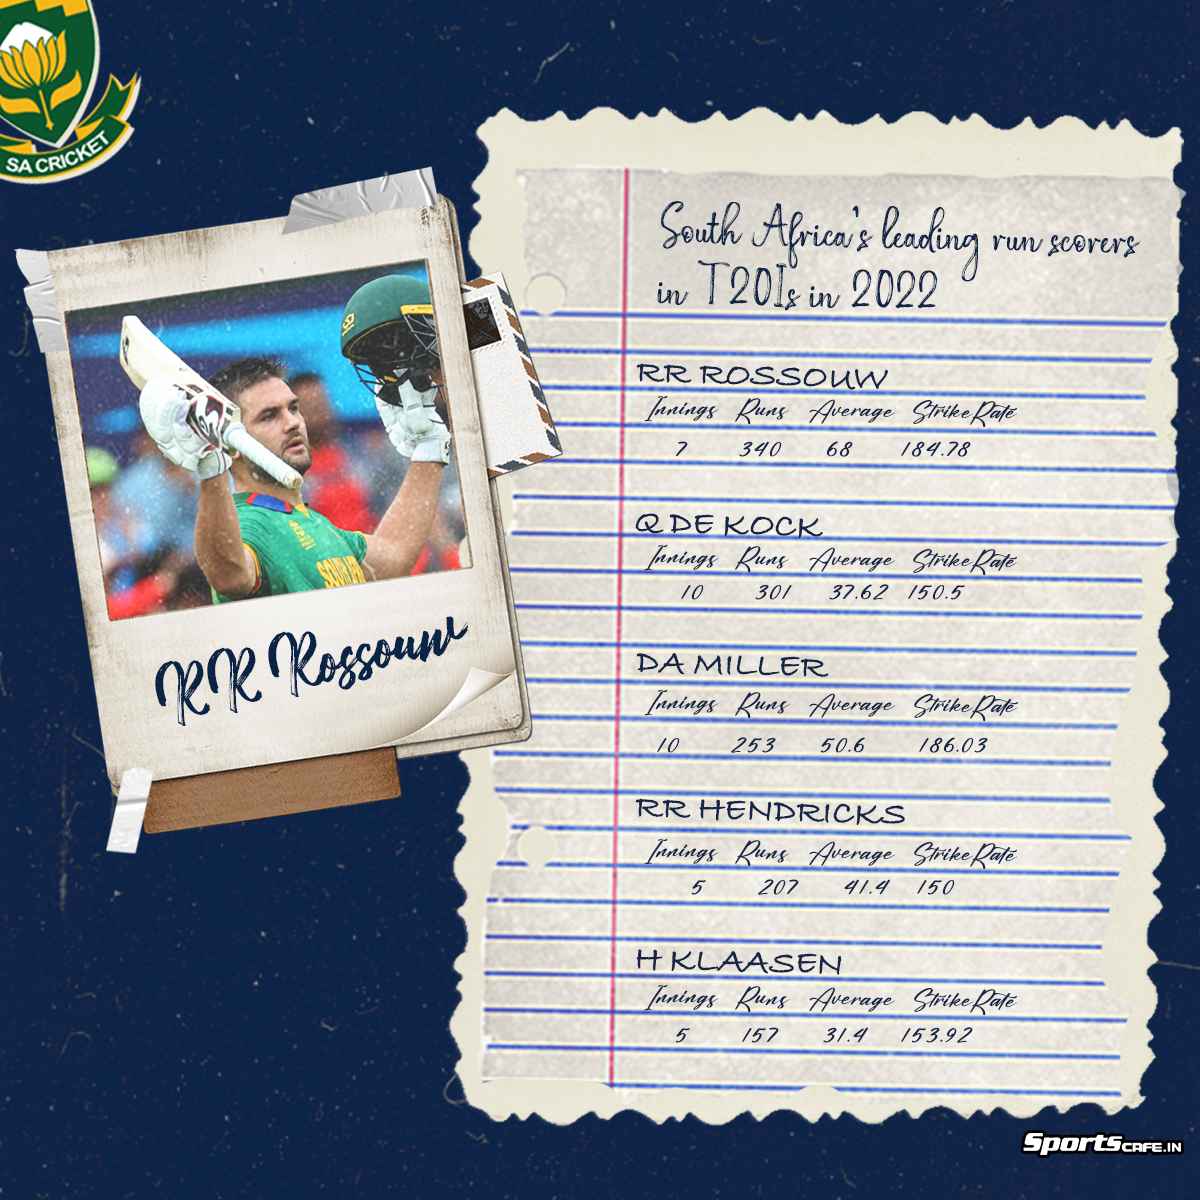 SA CRICKET
South Africa's leading run scorers
in T20Is in 2022
RR ROSSOUW
Innings Runs Average Strike Rate
7 340 68 184.78
Q DE KOCK
Innings Runs Average Strike Rate
10 301 37.62 150.5
DA MILLER
Innings Runs Average Strike Rate
10 253 50.6 186.03
RR HENDRICKS
Innings Runs Average Strike Rate
5 207 41.4 150
H KLAASEN
Innings Runs Average Strike Rate
5 157 31.4 153.92
RR Rossouw
SportsCAFE.IN